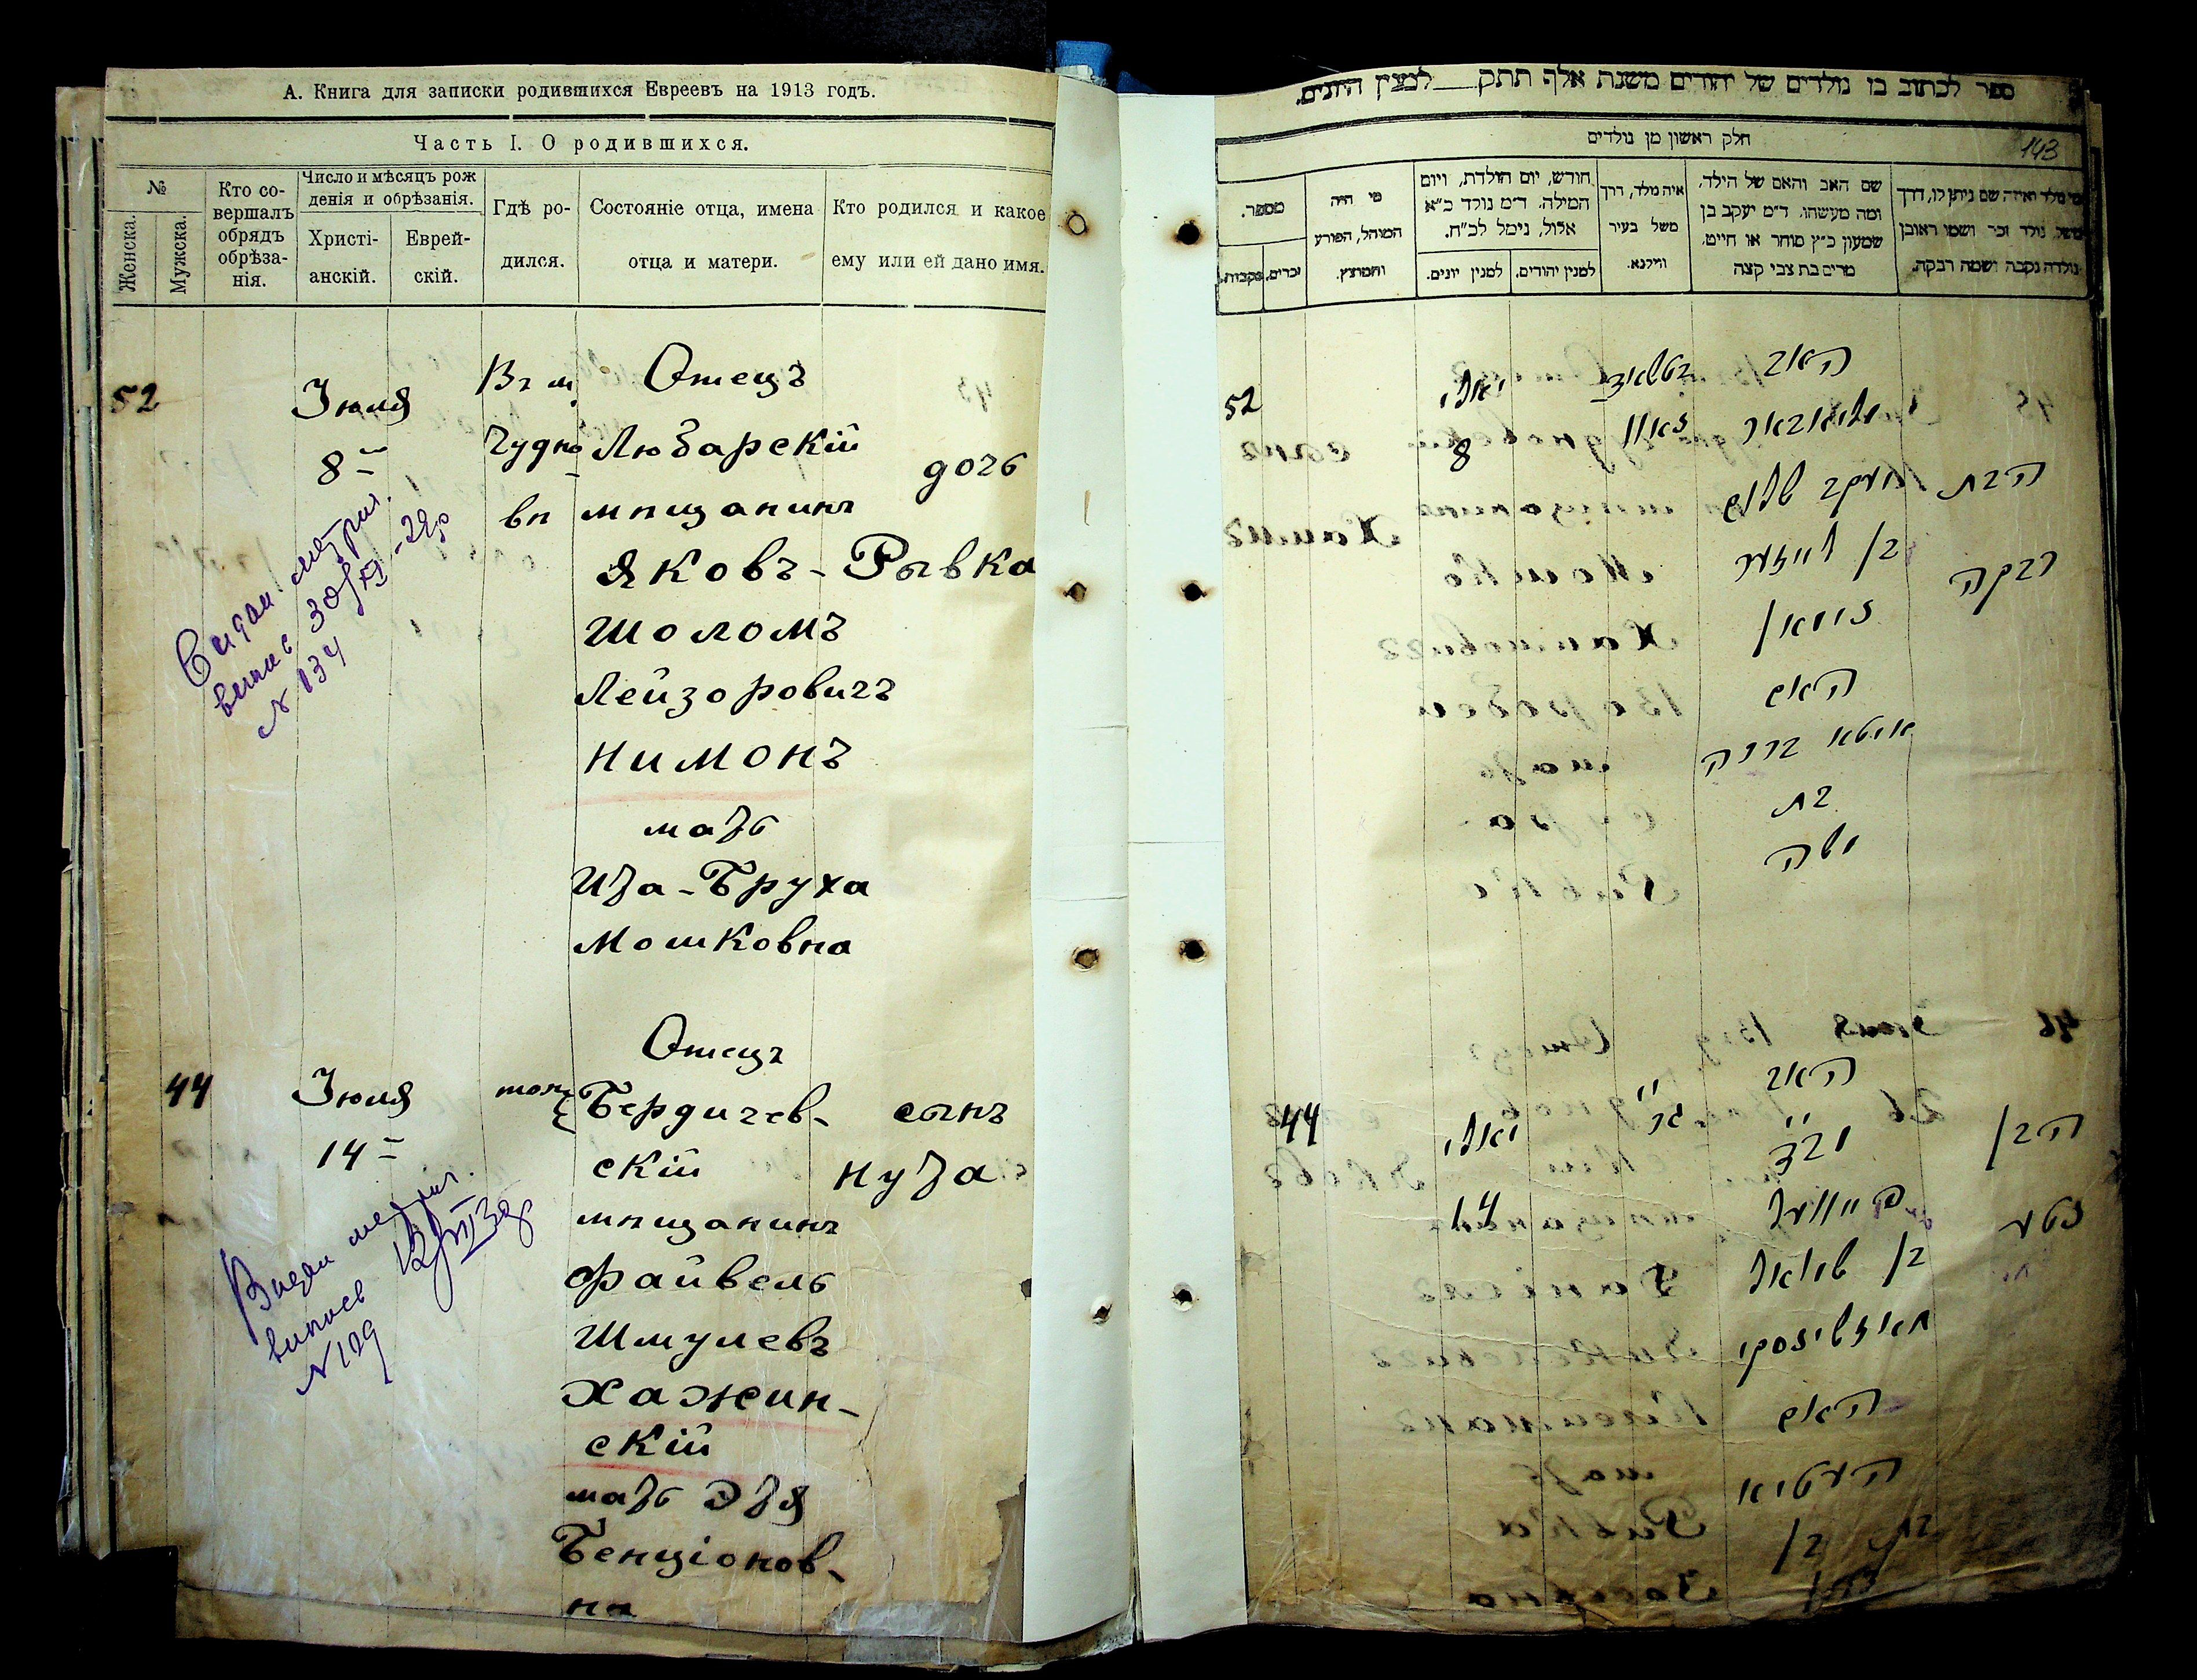 А. Книга для записки родившихся Евреевъ на 1913 годъ.
Часть I. О родившихся.
№
Женска.
Мужска.
Кто со-
вершалъ
обрядъ
обрѣза-
нія.
Число и мѣсяцъ рож
денія и обрѣзанія.
Христі-
анскій.
Еврей-
скій.
Гдѣ ро-
дился.
Состояніе отца, имена
отца и матери.
Кто родился и какое
ему или ей дано имя.
52
Іюля
8
Въ м.
Чудно
вѣ
Отецъ
Любарскій
мѣщанинъ
Яковъ-
Шоломъ
Лейзоровичъ
Нимонъ
мать
Ита-Бруха
Мошковна
дочь
Рывка
Видан. метрич.
випис
N 134
44
Іюля
14
тамъ
Отецъ
Бердичев-
скій
мѣщанинъ
Файвель
Шмулевъ
Хажин-
скій
мать Этя
Бенціонов-
на
сынъ
Нута
Видан метрич.
виписъ
N 129
ספר לכתוב בו נולדים של יהודים משנת אלף תתק למנין היונים.
143
חלק ראשון מן נולדים
מספר.
זכרים.
נקבות.
מי היה
המוהל, הפורע
והמוצץ.
חודש, יום הולדת, ויום
המילה. ד״מ נולד כ״א
אלול, נימל לכ״ח.
למנין יונים.
למנין יהודים.
איה מלד, דרך
משל בעיר
ווילנא.
שם האב והאם של הילד,
ומה מעשהו. ד״מ יעקב בן
שמעון כ״ץ סוחר או חייט.
מרים בת צבי קצה
מי מלד ואיזה שם ניתן לו, דרך
משל, נולד זכר ושמו ראובן
נולדה נקבה ושמה רבקה.
52
יאלי
8
האב
יעקב שלום
בן לייזער
האם
איטא ברכה
בת
משה
הבת
רבקה
44
יאלי
14
האב
פייוועל
בן שמואל
האם
העטיא
בת בן
ציון
הבן
נטע